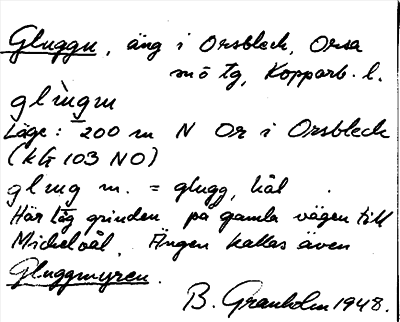 Gluggn, äng i Orsbleck, Orsa
sn ö tg, Kopparb. l.
glùgn
Läge: 200 m N Or i Orsbleck
(kG 103 NO)
glug m. = glugg, hål
Här låg grinden på gamla vägen till
Mickelvål. Ängen kallas även
Gluggmyren.
B. Granholm 1948.